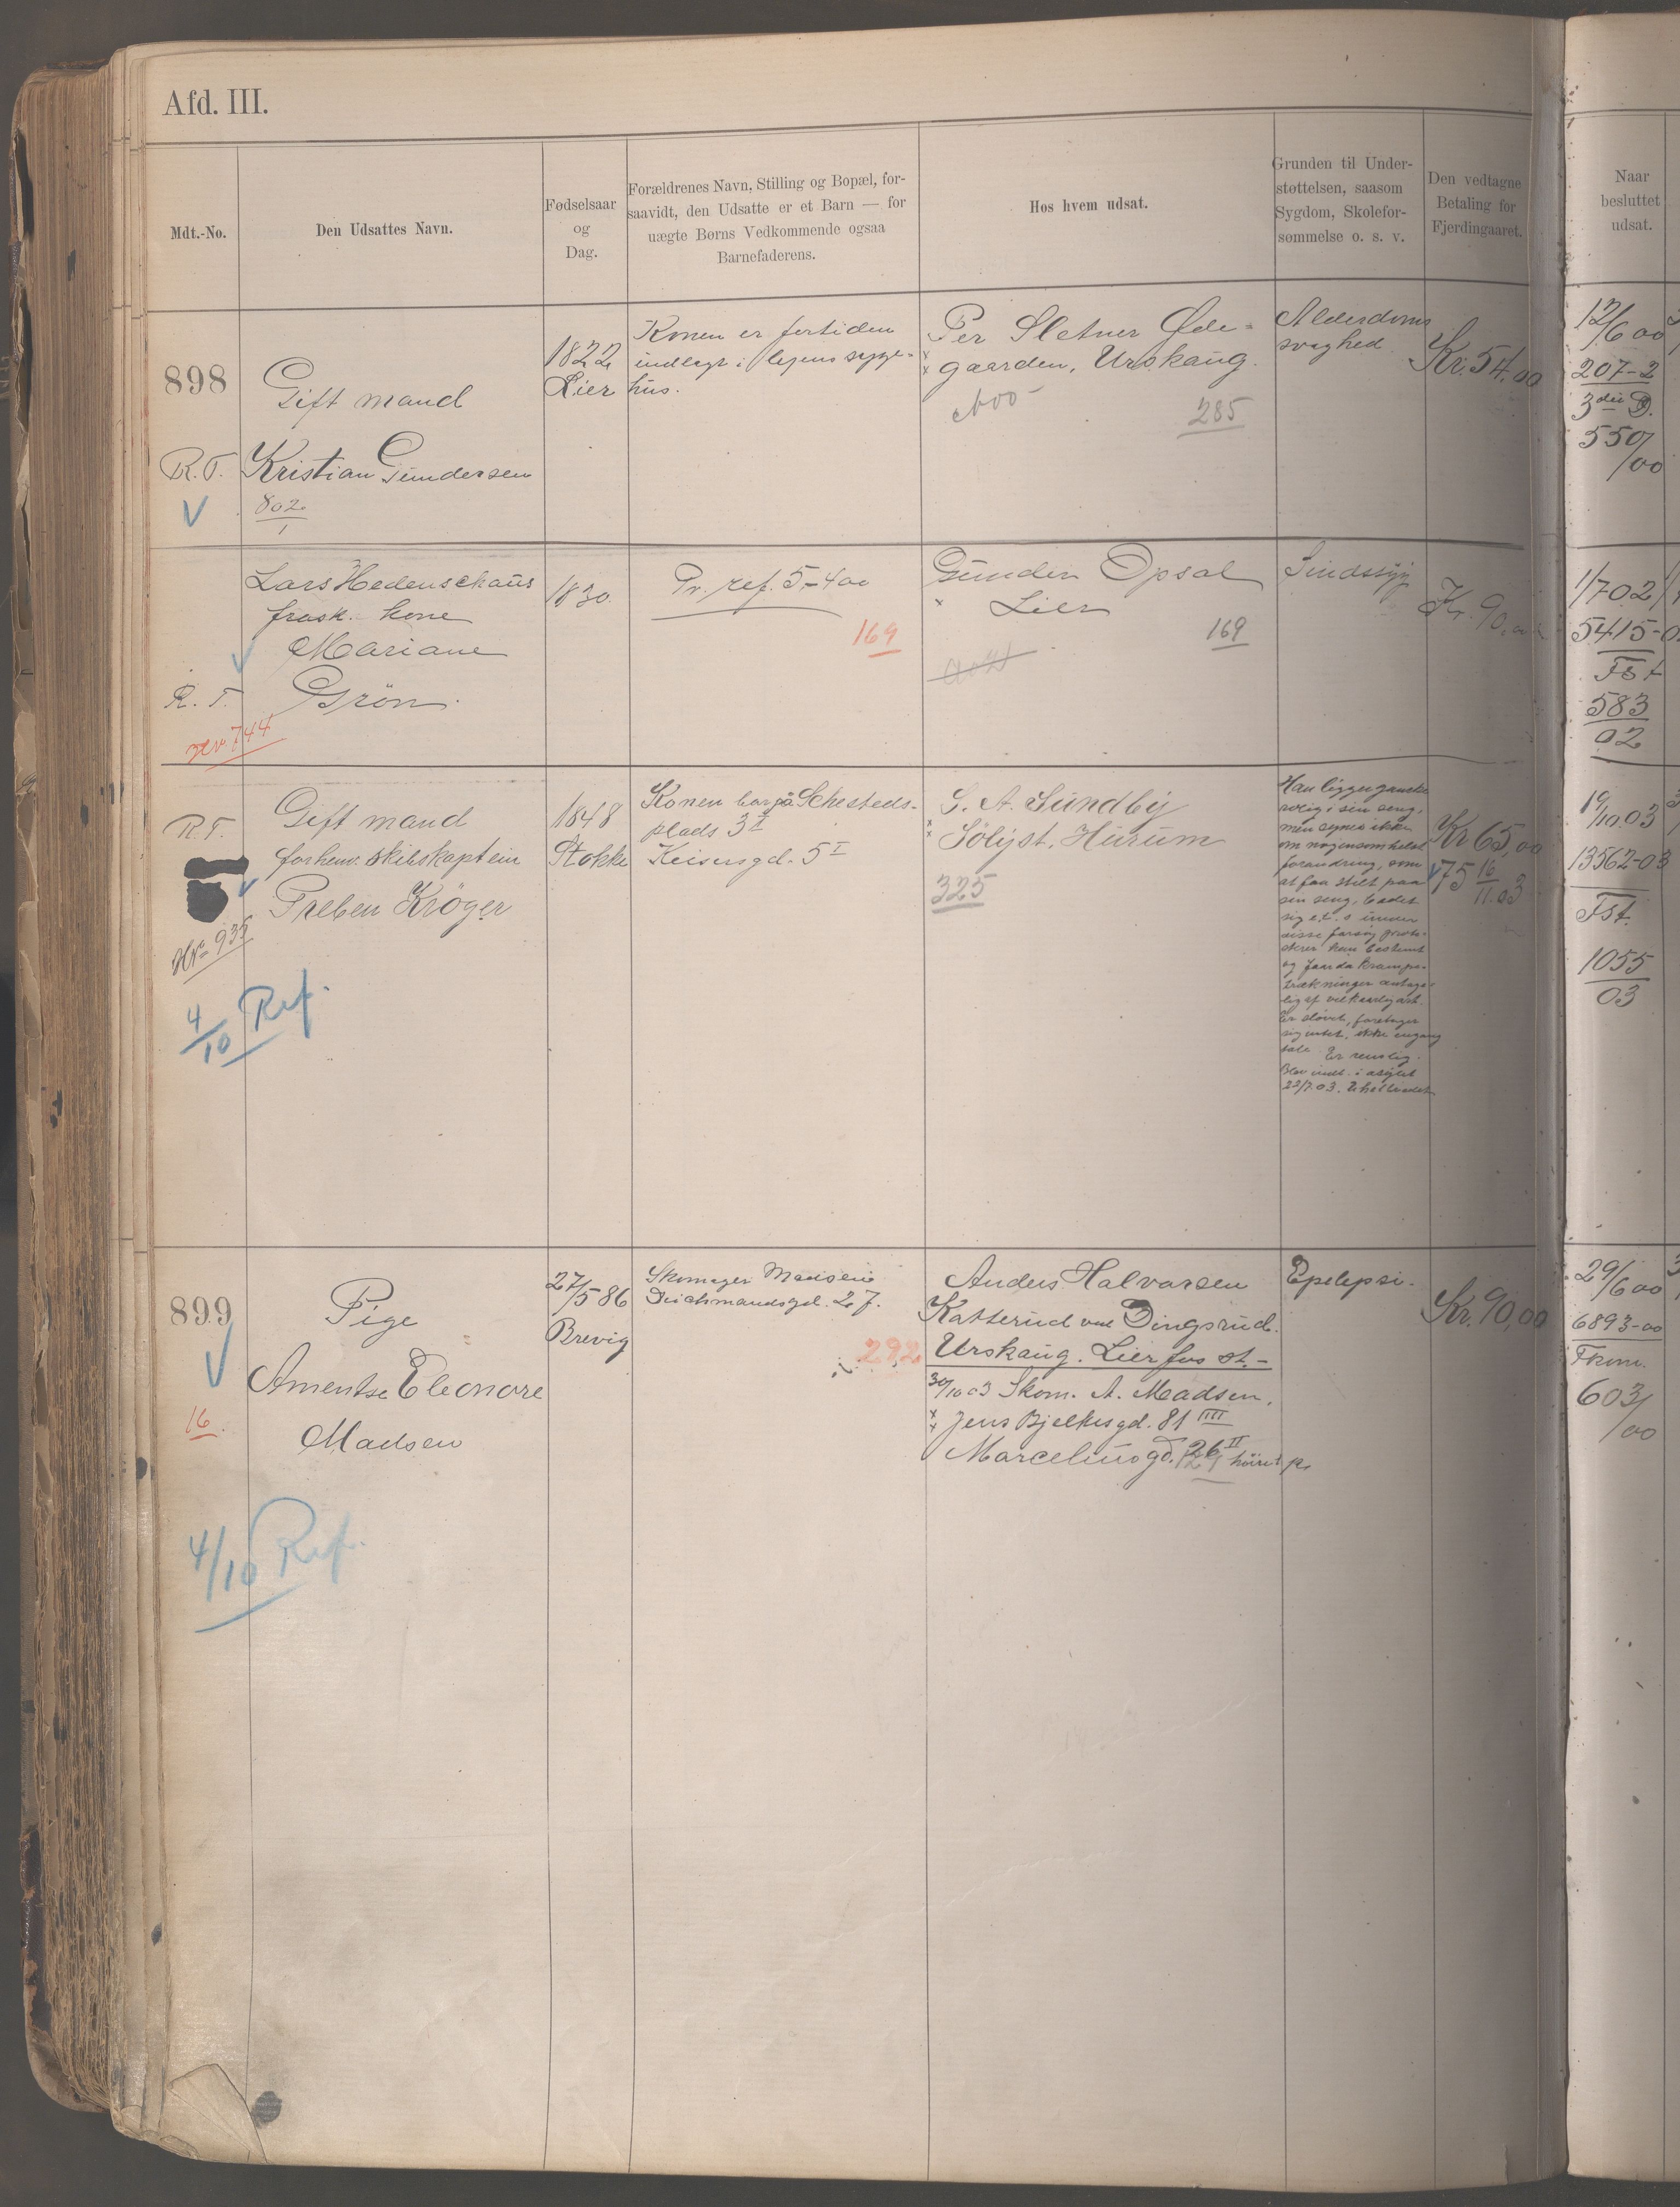 Afd. III.
Mdt.-No.
Den Udsattes Navn.
Fødselsaar
og
Dag.
Forældrenes Navn, Stilling og Bopæl, for-
saavidt, den Udsatte er et Barn — for
uægte Børns Vedkommende ogsaa
Barnefaderens.
Hos hvem udsat.
Grunden til Under-
støttelsen, saasom
Sygdom, Skolefor-
sømmelse o. s. v.
Den vedtagne
Betaling for
Fjerdingaaret.
Naar
besluttet
udsat.
898
R. T.
Gift mand
Kristian Gundersen
802
1
1822
Lier
Konen er fortiden
indlagt i Lejens syge-
hus.
Per Sletner Øde-
gaarden, Urskaug.
285
Alderdoms
svaghed
Kr. 54,00
12/6 00
207-2
3die D.
550/
/00
Lars Hedenschaus
frask. kone
Mariane
Grön.
R. T.
744
1830.
Pr. ref. 5-4 00
169
Gunder Opsal
Lier
169
Sindssyg
Kr. 90,00
1/7 02
5415-0
Fst
583
02
R. T.
Gift mand
forhenv. skibskaptein
Preben Kröger
No 935
4/10 Ref.
1848
Stokke
Konen bor på Schesteds-
plads 3 I
Keisersgd. 5 I
S. A. Sundby
Sölyst, Hurum
325
Han ligger ganske
rolig i sin seng,
men synes ikke
om nogensomhelst
forandring, som
at faa stelt paa
sin seng, badet
sig etc. & under
disse forsøg
skrer han bestemt
og faar da krampe-
trækninger antage-
lig af vilkaarlig art.
Er sløvet, foretager
sig intet, ikke engang
tale. Er renslig.
Blev indl. i asylet
22/7.03.
Kr 65,00
75 16/11.03
19/10.03
13562-03
Fst.
1055
03
899
16.
Pige
Amentse Eleonore
Madsen
4/10 Ref.
27/5 86
Brevig
Skomager Madsen
Deichmandsgd. 27.
292
Anders Halvorsen
Katterud ved Dingsrud.
Urskaug. Lierfos st.-
30/10 03 Skom. A. Madsen,
Jens Bjelkesgd. 81 IIII
Marcelius gd. 26 II höire p.
Epelepsi.
Kr. 90,00
29/6 00
6893-00
Fkom.
603/
/00